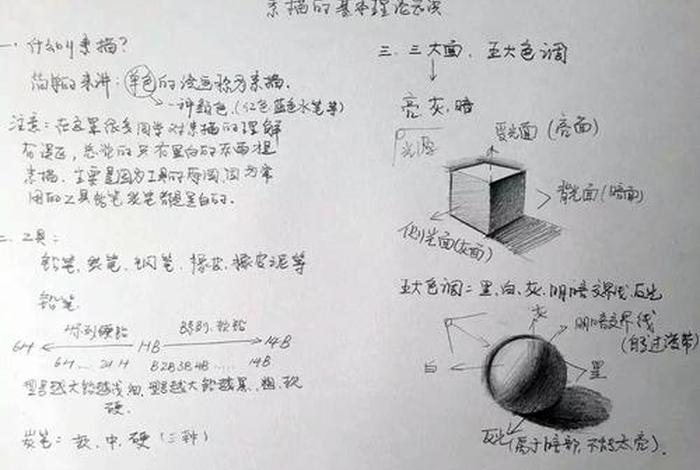 素描的基本理论知识
一. 什么叫素描?
简单的来讲: 单色的绘画称为素描.
一种颜色. (红色. 蓝色水笔等)
注意: 在这里很多同学对素描的理解
有误区, 总觉的只有黑白的东西是
素描. 主要是因为工具的原因, 因为常
用的工具铅笔炭笔都是黑白的.
二. 工具:
铅笔. 炭笔. 钢笔. 橡皮. 橡皮泥等
铅笔
H系列硬铅 B系列. 软铅
6H HB 14B
6H .... 2H H B 2B 3B 4B ..... 14B
型号越大铅越浅. 细, 型号越大铅越黑. 粗. 软
硬.
炭笔: 软. 中. 硬 (三种)
三. 三大面. 五大色调
亮. 灰. 暗
光源
受光面 (亮面)
背光面 (暗面)
侧光面(灰面)
五大色调: 黑. 白. 灰. 明暗交界线. 反光
灰
明暗交界线
(的过渡带)
白
黑
反光(属于暗部, 不能太亮).